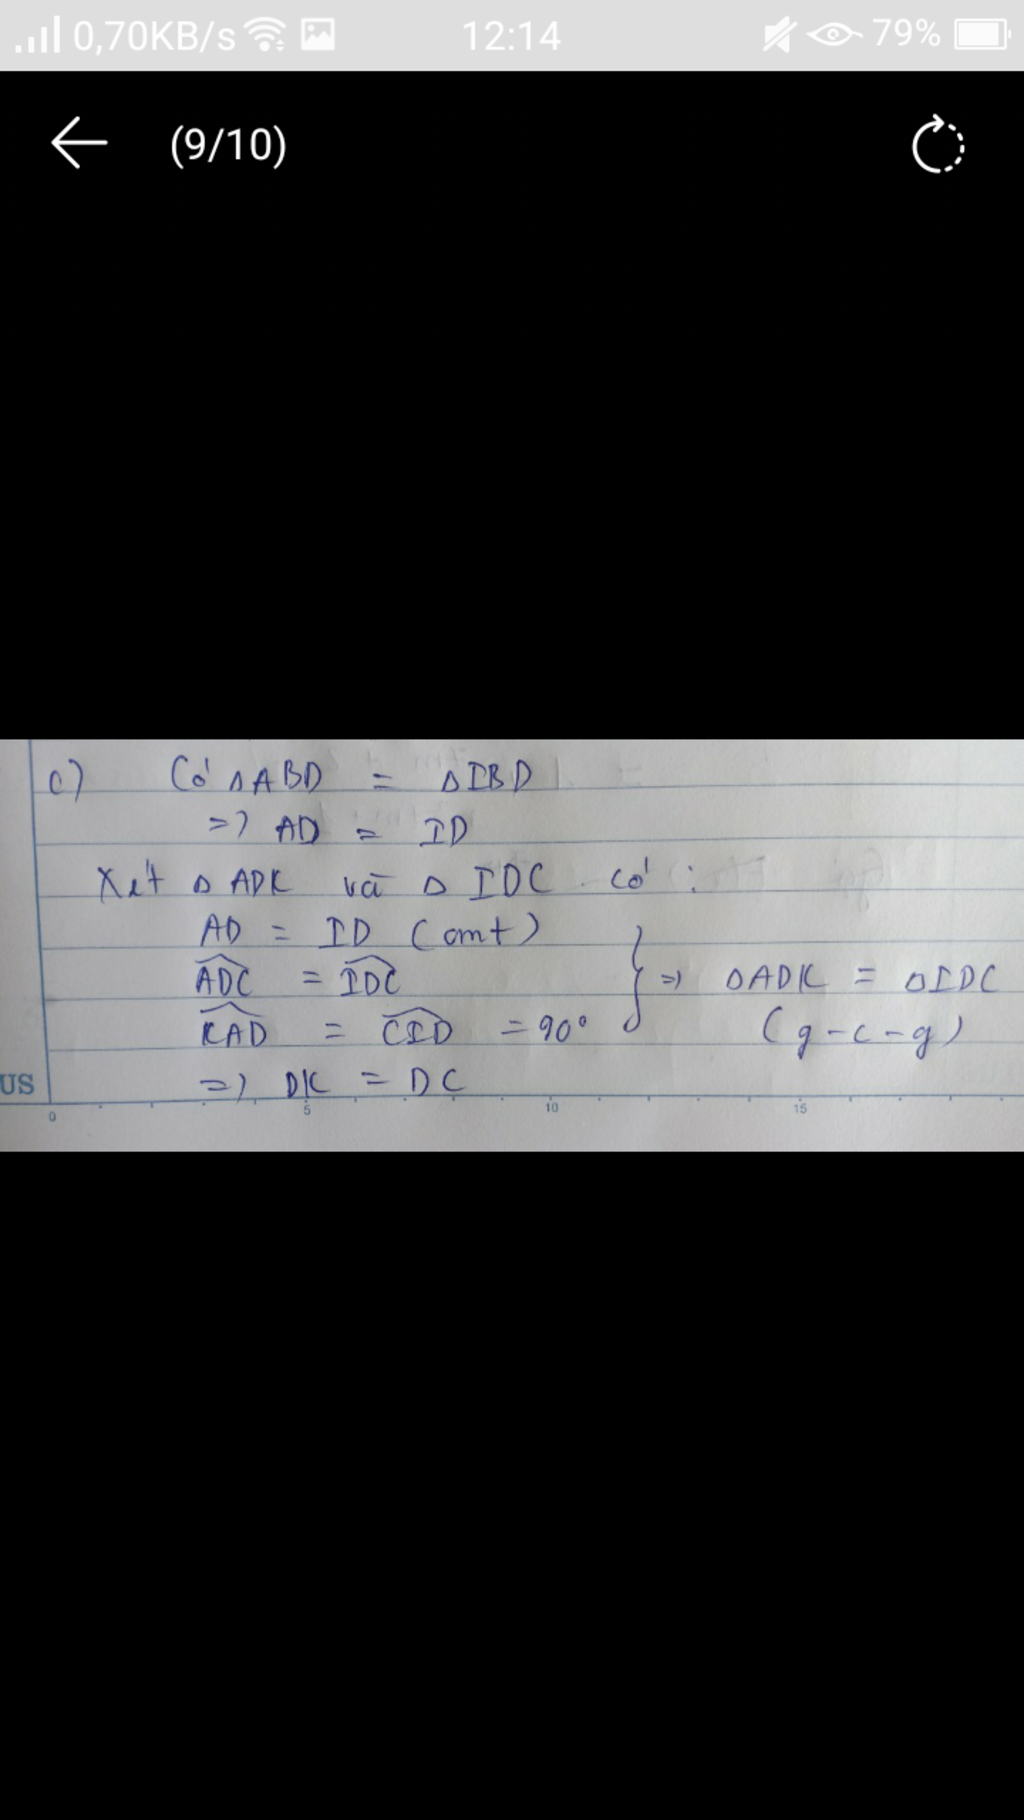 0,70KB/s 12:14 79%
(9/10)
c) Có △ABD = △IBD
=> AD = ID
Xét △ADK và △IDC có :
AD = ID (cmt)
ADC = IDC
KAD = CID = 90° } => △ADK = △IDC
(g-c-g)
=> DK = DC
US
0 5 10 15